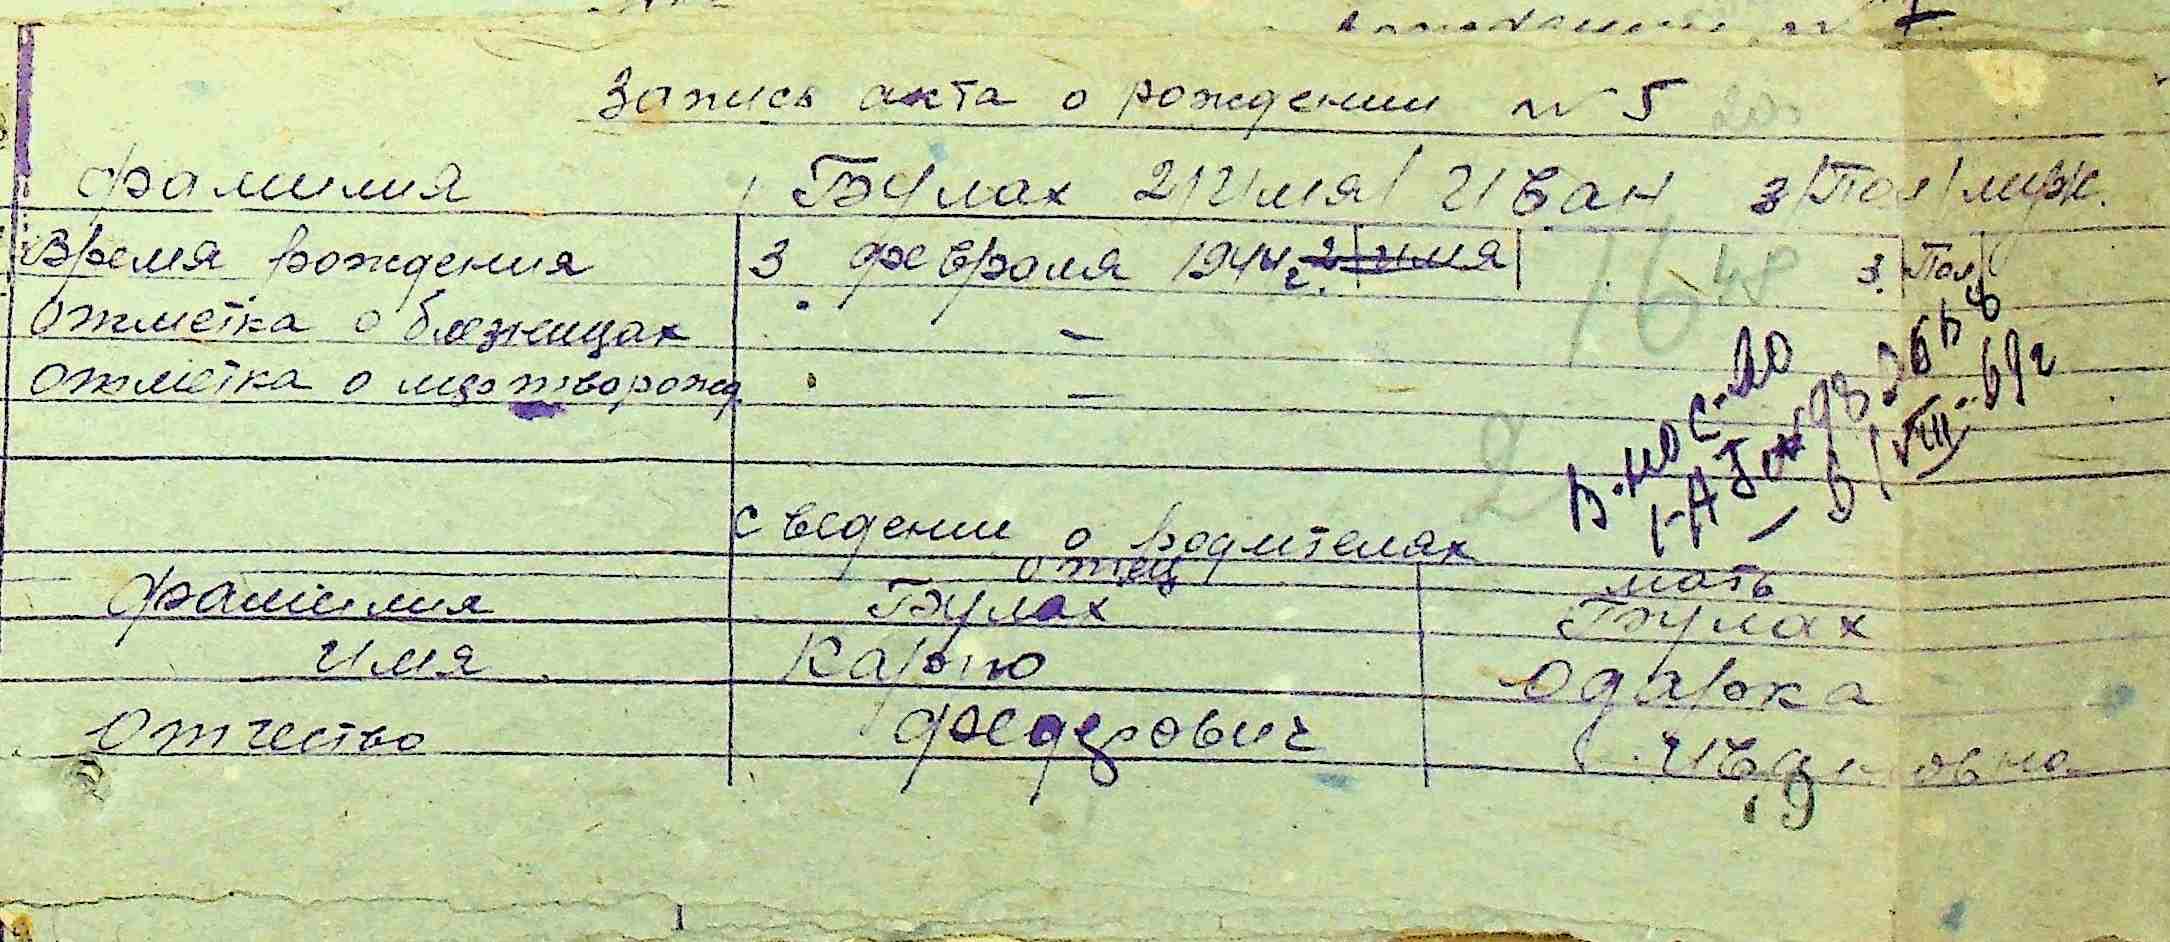 Запись акта о рождении № 5
фамилия Булах 2/Имя/ Иван 3/Пол/ муж.
Время рождения 3 февраля 1944 г. 2 имя 3. Пол
отметка о близнецах —
отметка о мертворожд. —
сведение о родителях
отец мать
фамилия Булах Булах
имя Карпо Одарка
отчество Федорович Ивановна
19